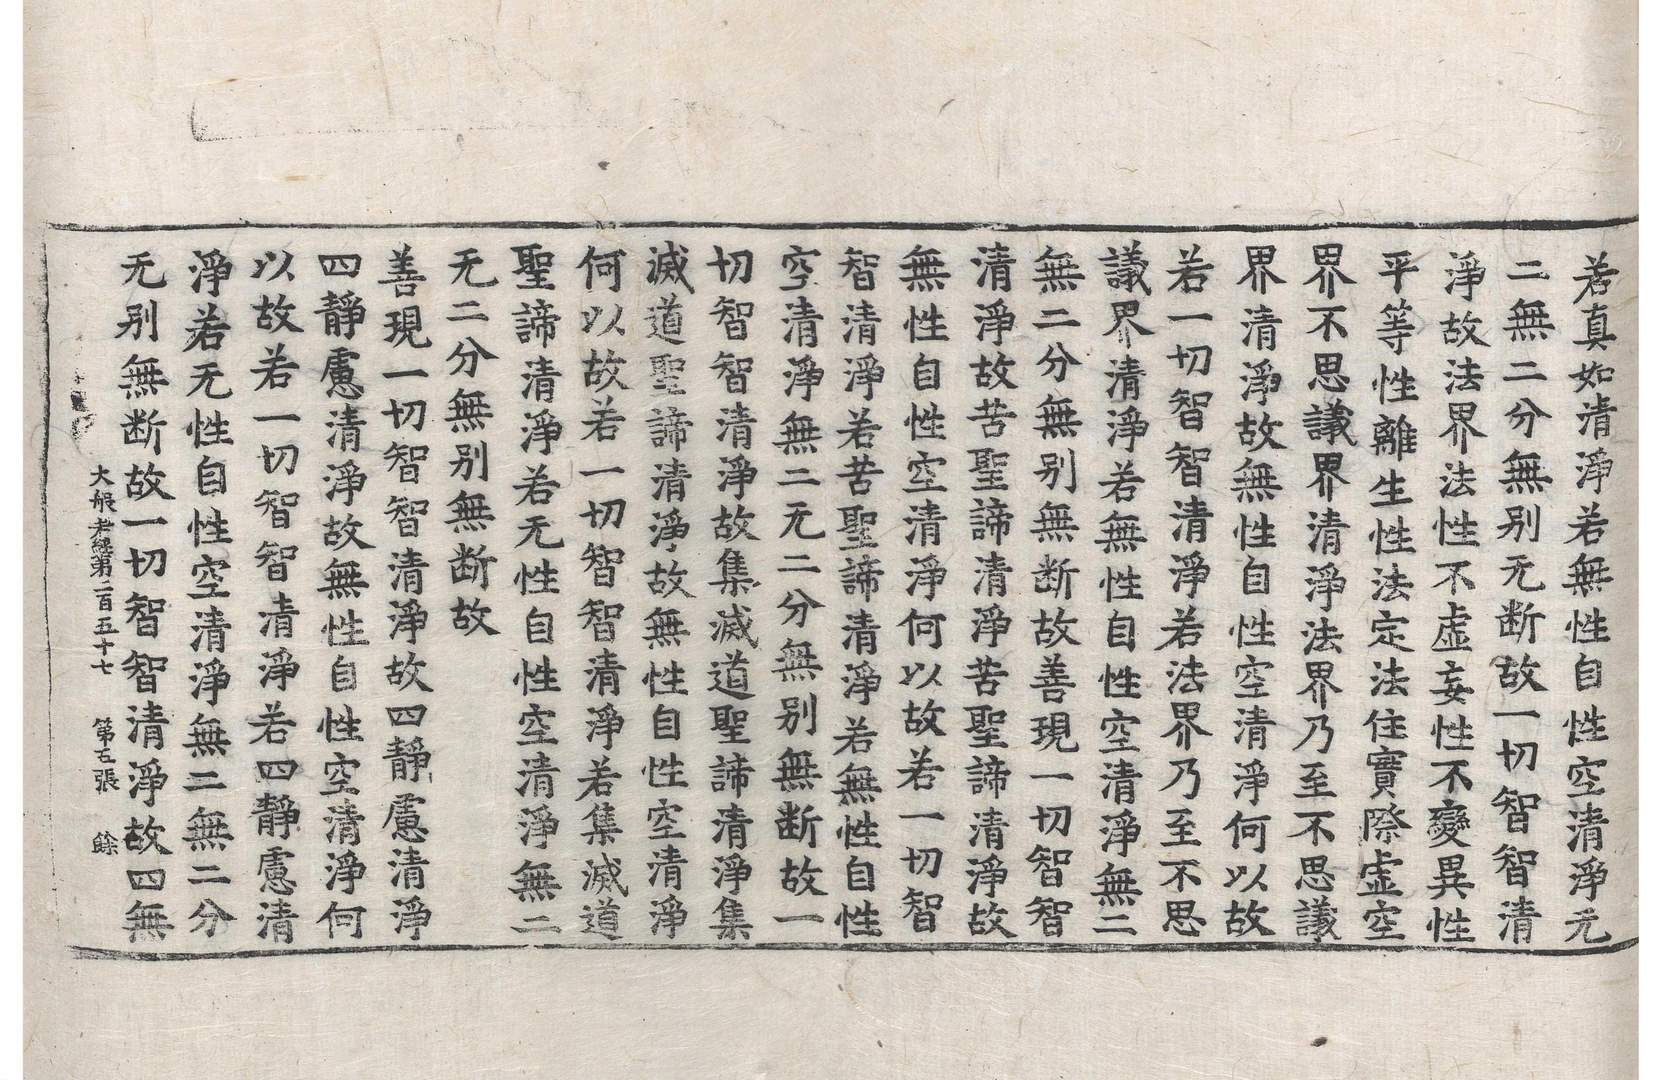 若真如清淨若無性自性空清淨无
二無二分無别无断故一切智智清
淨故法界法性不虛妄性不變異性
平等性離生性法定法住實際虛空
界不思議界清淨法界乃至不思議
界清淨故無性自性空清淨何以故
若一切智智清淨若法界乃至不思
議界清淨若無性自性空清淨無二
無二分無别無断故善現一切智智
清淨故苦聖諦清淨苦聖諦清淨故
無性自性空清淨何以故若一切智
智清淨若苦聖諦清淨若無性自性
空清淨無二无二分無别無断故一
切智智清淨故集滅道聖諦清淨集
滅道聖諦清淨故無性自性空清淨
何以故若一切智智清淨若集滅道
聖諦清淨若无性自性空清淨無二
无二分無别無断故
善現一切智智清淨故四靜慮清淨
四靜慮清淨故無性自性空清淨何
以故若一切智智清淨若四靜慮清
淨若无性自性空清淨無二無二分
无别無断故一切智智清淨故四無
大般若經第二百五十七 第五張 餘